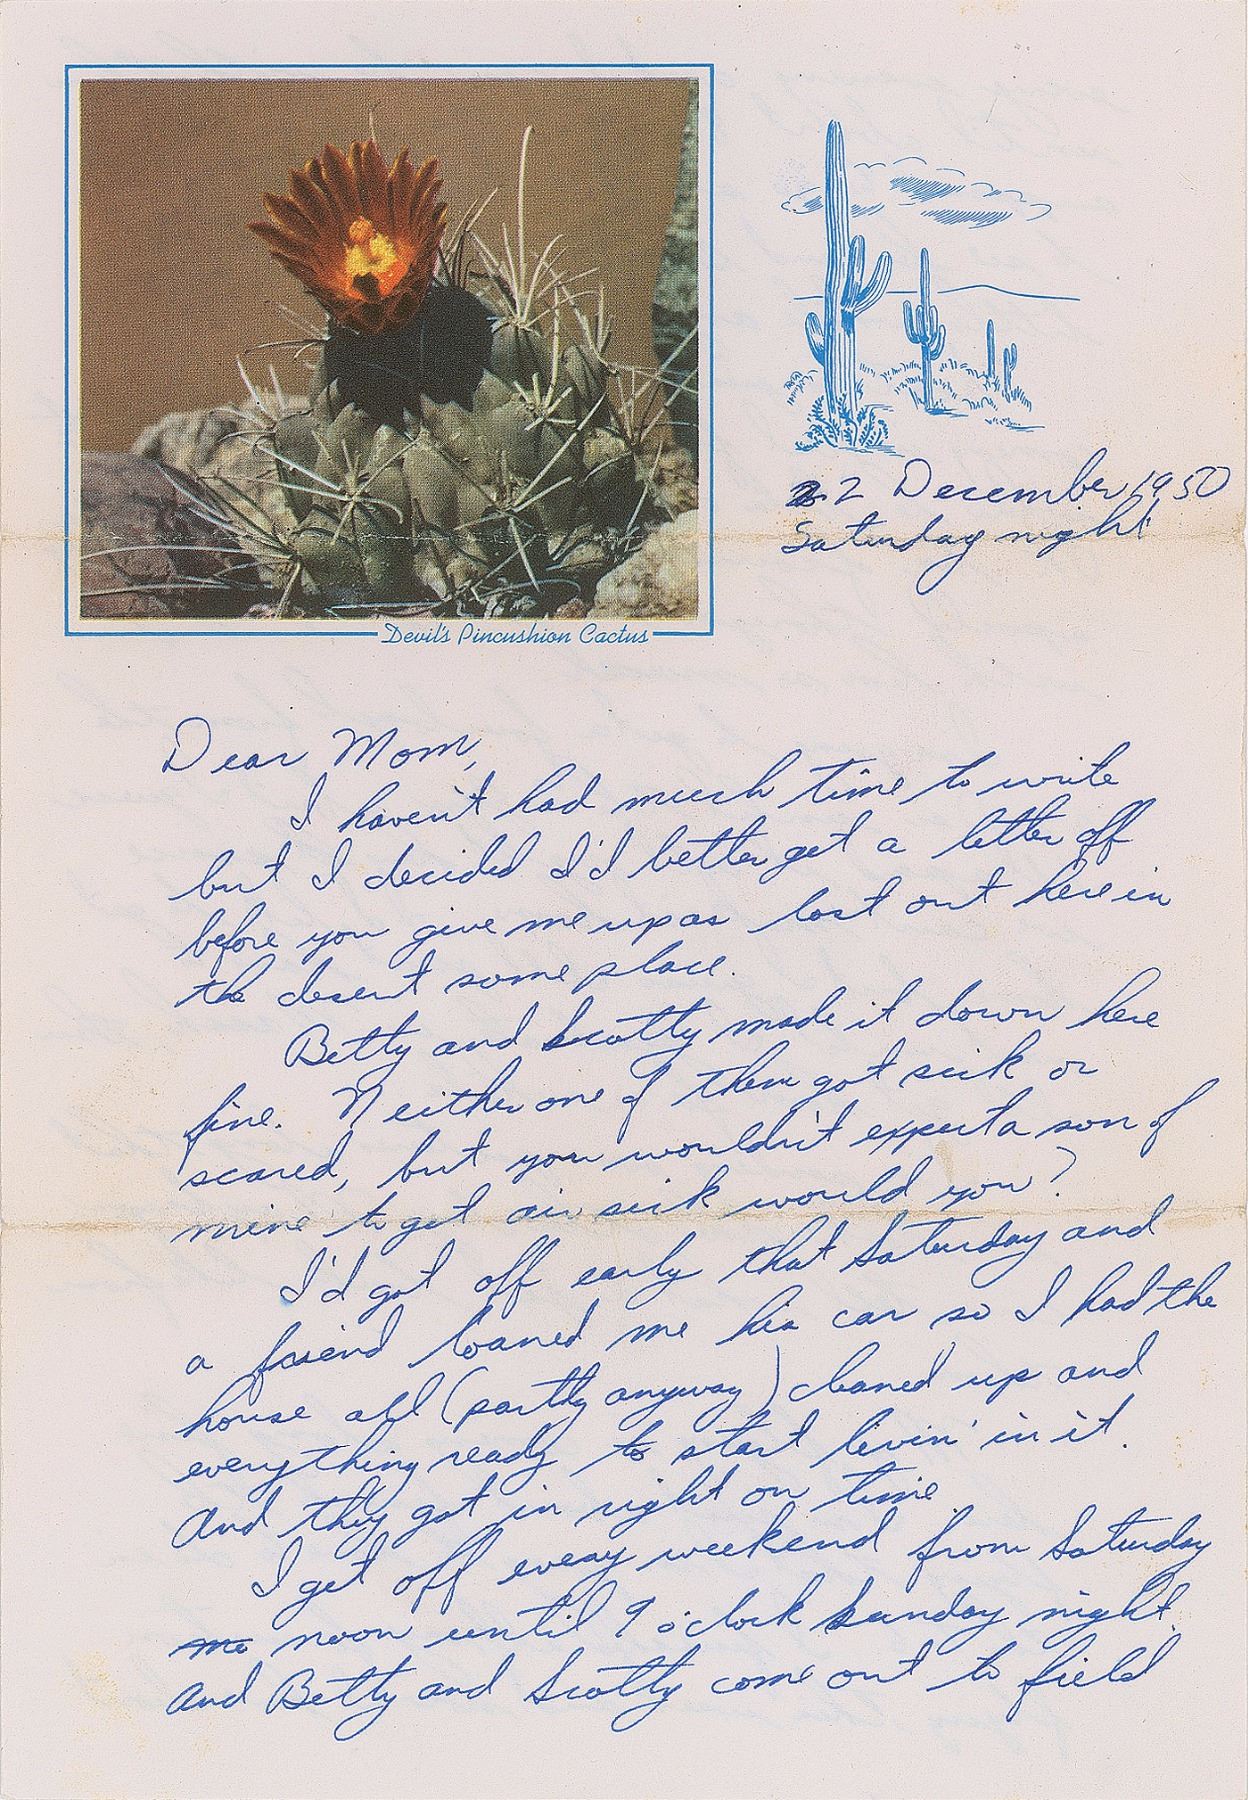 Devil's Pincushion Cactus
22 December 1950
Saturday night
Dear Mom,
I haven't had much time to write
but I decided I'd better get a letter off
before you give me up as lost out here in
the desert some place.
Betty and Scotty made it down here
fine. Neither one of them got sick or
scared, but you wouldn't expect a son of
mine to get air sick would you?
I'd got off early that Saturday and
a friend loaned me his car so I had the
house all (partly anyway) cleaned up and
everything ready to start livin' in it.
And they got in right on time
I get off every weekend from Saturday
noon until 9 o'clock Sunday night.
And Betty and Scotty come out to field